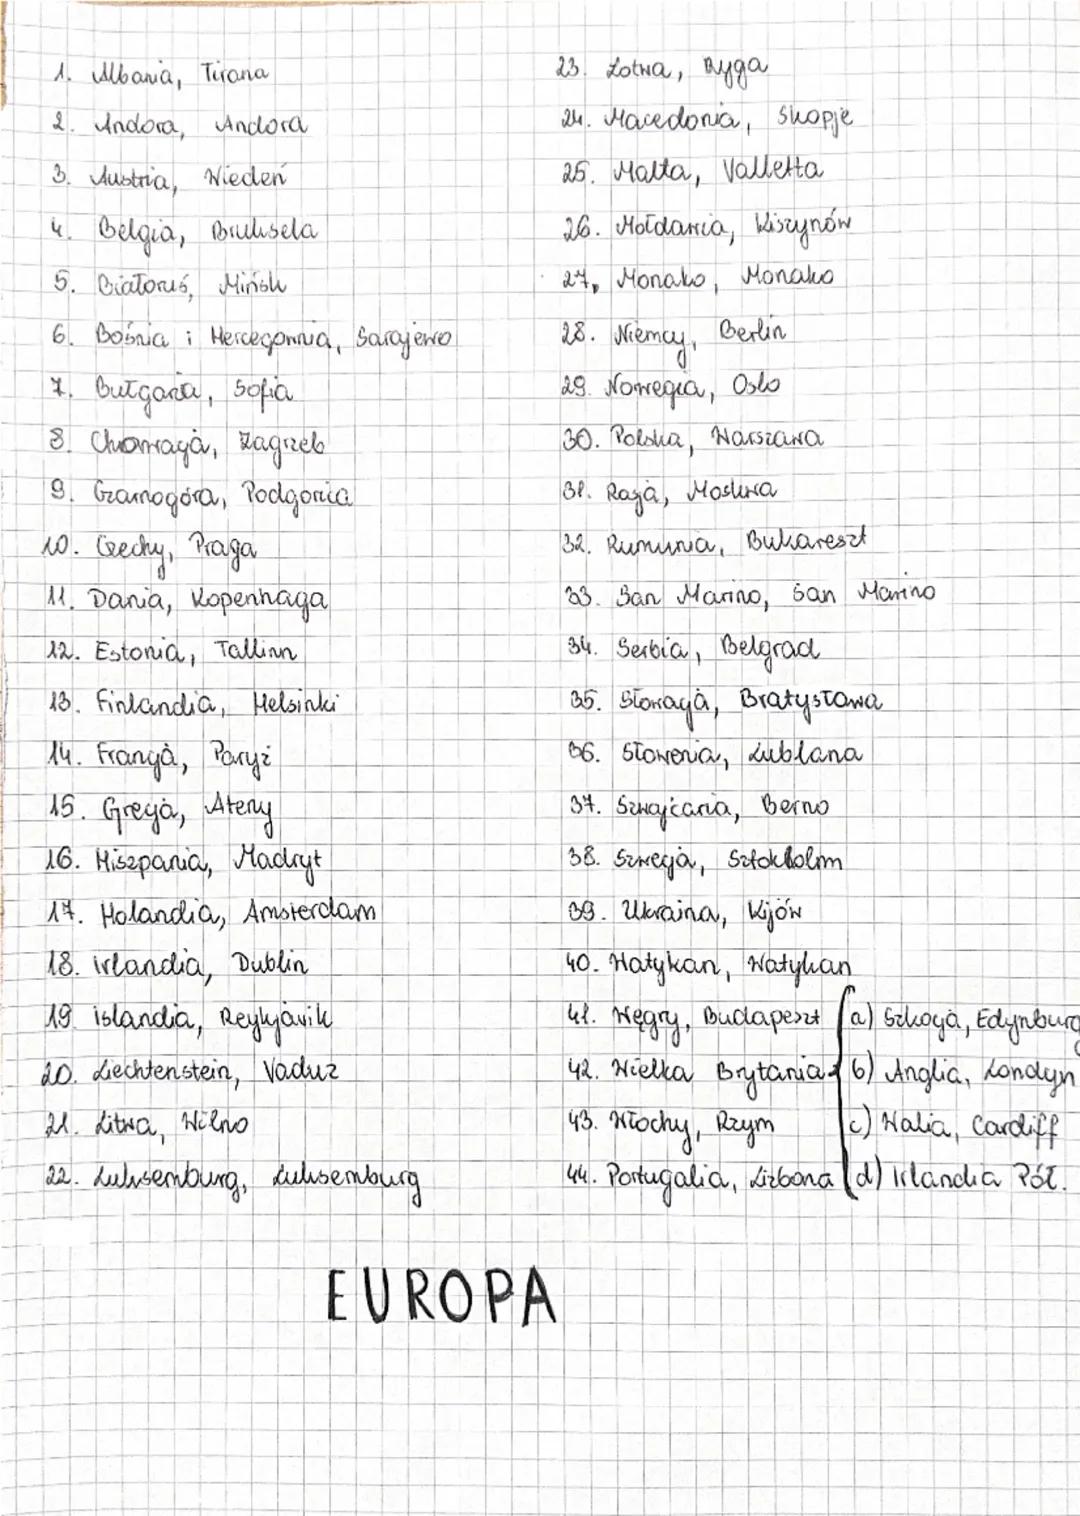 1. Albania, Tirana
2. Andora, Andora
3. Austria, Wiedeń
4. Belgia, Bruksela
5. Białoruś, Mińsk
6. Bośnia i Hercegowina, Sarajewo
7. Bułgaria, Sofia
8. Chorwacja, Zagrzeb
9. Czarnogóra, Podgorica
10. Czechy, Praga
11. Dania, Kopenhaga
12. Estonia, Tallinn
13. Finlandia, Helsinki
14. Francja, Paryż
15. Grecja, Ateny
16. Hiszpania, Madryt
17. Holandia, Amsterdam
18. Irlandia, Dublin
19. Islandia, Reykjavik
20. Liechtenstein, Vaduz
21. Litwa, Wilno
22. Luksemburg, Luksemburg
23. Łotwa, Ryga
24. Macedonia, Skopje
25. Malta, Valletta
26. Mołdawia, Kiszynów
27. Monako, Monako
28. Niemcy, Berlin
29. Norwegia, Oslo
30. Polska, Warszawa
31. Rosja, Moskwa
32. Rumunia, Bukareszt
33. San Marino, San Marino
34. Serbia, Belgrad
35. Słowacja, Bratysława
36. Słowenia, Lublana
37. Szwajcaria, Berno
38. Szwecja, Sztokholm
39. Ukraina, Kijów
40. Watykan, Watykan
41. Węgry, Budapeszt
42. Wielka Brytania
a) Szkocja, Edynburg
b) Anglia, Londyn
c) Walia, Cardiff
d) Irlandia Płł.
43. Włochy, Rzym
44. Portugalia, Lizbona
EUROPA